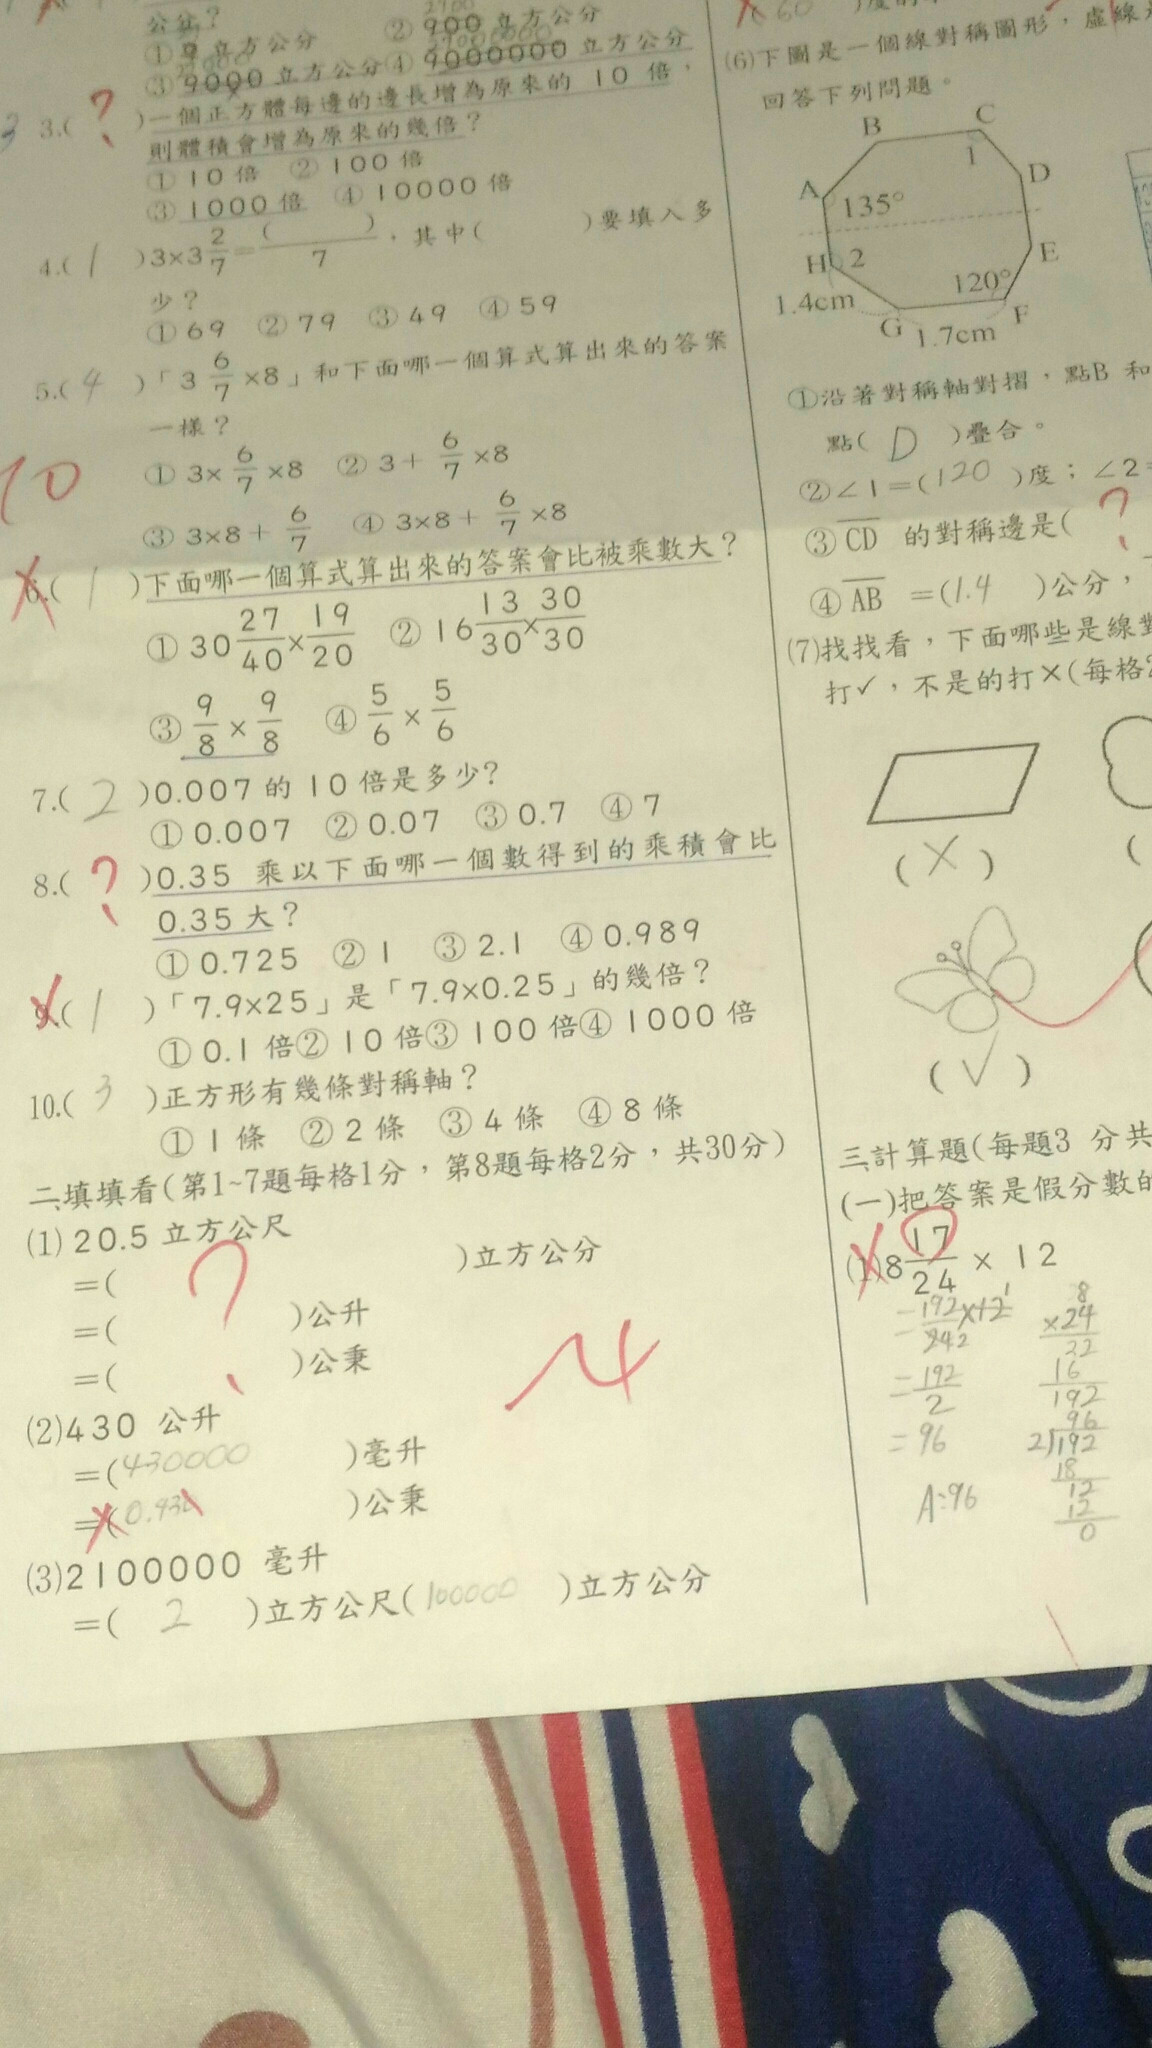 公分？
①9 立方公分 ②900 立方公分
③9000 立方公分④9000000 立方公分
3.( ? )一個正方體每邊的邊長增為原來的 10 倍，
則體積會增為原來的幾倍？
①10 倍 ②100 倍
③1000 倍 ④10000 倍
4.( 1 )3×3 2/7=( )/7，其中( )要填入多
少？
①69 ②79 ③49 ④59
5.( 4 )「3 6/7×8」和下面哪一個算式算出來的答案
一樣？
①3×6/7×8 ②3+6/7×8
③3×8+6/7 ④3×8+6/7×8
10
6.( 1 )下面哪一個算式算出來的答案會比被乘數大？
①30 27/40×19/20 ②16 13/30×30/30
③9/8×9/8 ④5/6×5/6
7.( 2 )0.007 的 10 倍是多少？
①0.007 ②0.07 ③0.7 ④7
8.( ? )0.35 乘以下面哪一個數得到的乘積會比
0.35 大？
①0.725 ②1 ③2.1 ④0.989
9.( 1 )「7.9×25」是「7.9×0.25」的幾倍？
①0.1 倍②10 倍③100 倍④1000 倍
10.( 3 )正方形有幾條對稱軸？
①1 條 ②2 條 ③4 條 ④8 條
二、填填看(第1~7題每格1分，第8題每格2分，共30分)
(1) 20.5 立方公尺
=( ? )立方公分
=( )公升
=( )公秉
-4
(2)430 公升
=(430000 )毫升
=( )公秉
(3)2100000 毫升
=( 2 )立方公尺(100000 )立方公分
(6)下圖是一個線對稱圖形，虛線
回答下列問題。
B C
1
A D
135°
H 2 E
120°
1.4cm G F
1.7cm
①沿著對稱軸對摺，點B 和
點( D )疊合。
②∠1=(120 )度；∠2=
③CD 的對稱邊是( ?
④AB =(1.4 )公分，
(7)找找看，下面哪些是線對
打✓，不是的打×(每格2
( × ) (
( ✓ )
三、計算題(每題3 分共
(一)把答案是假分數的
(1)8 17/24 × 12
=192/2
=96
A:96
8
×24
32
16
192
96
2)192
18
12
12
0